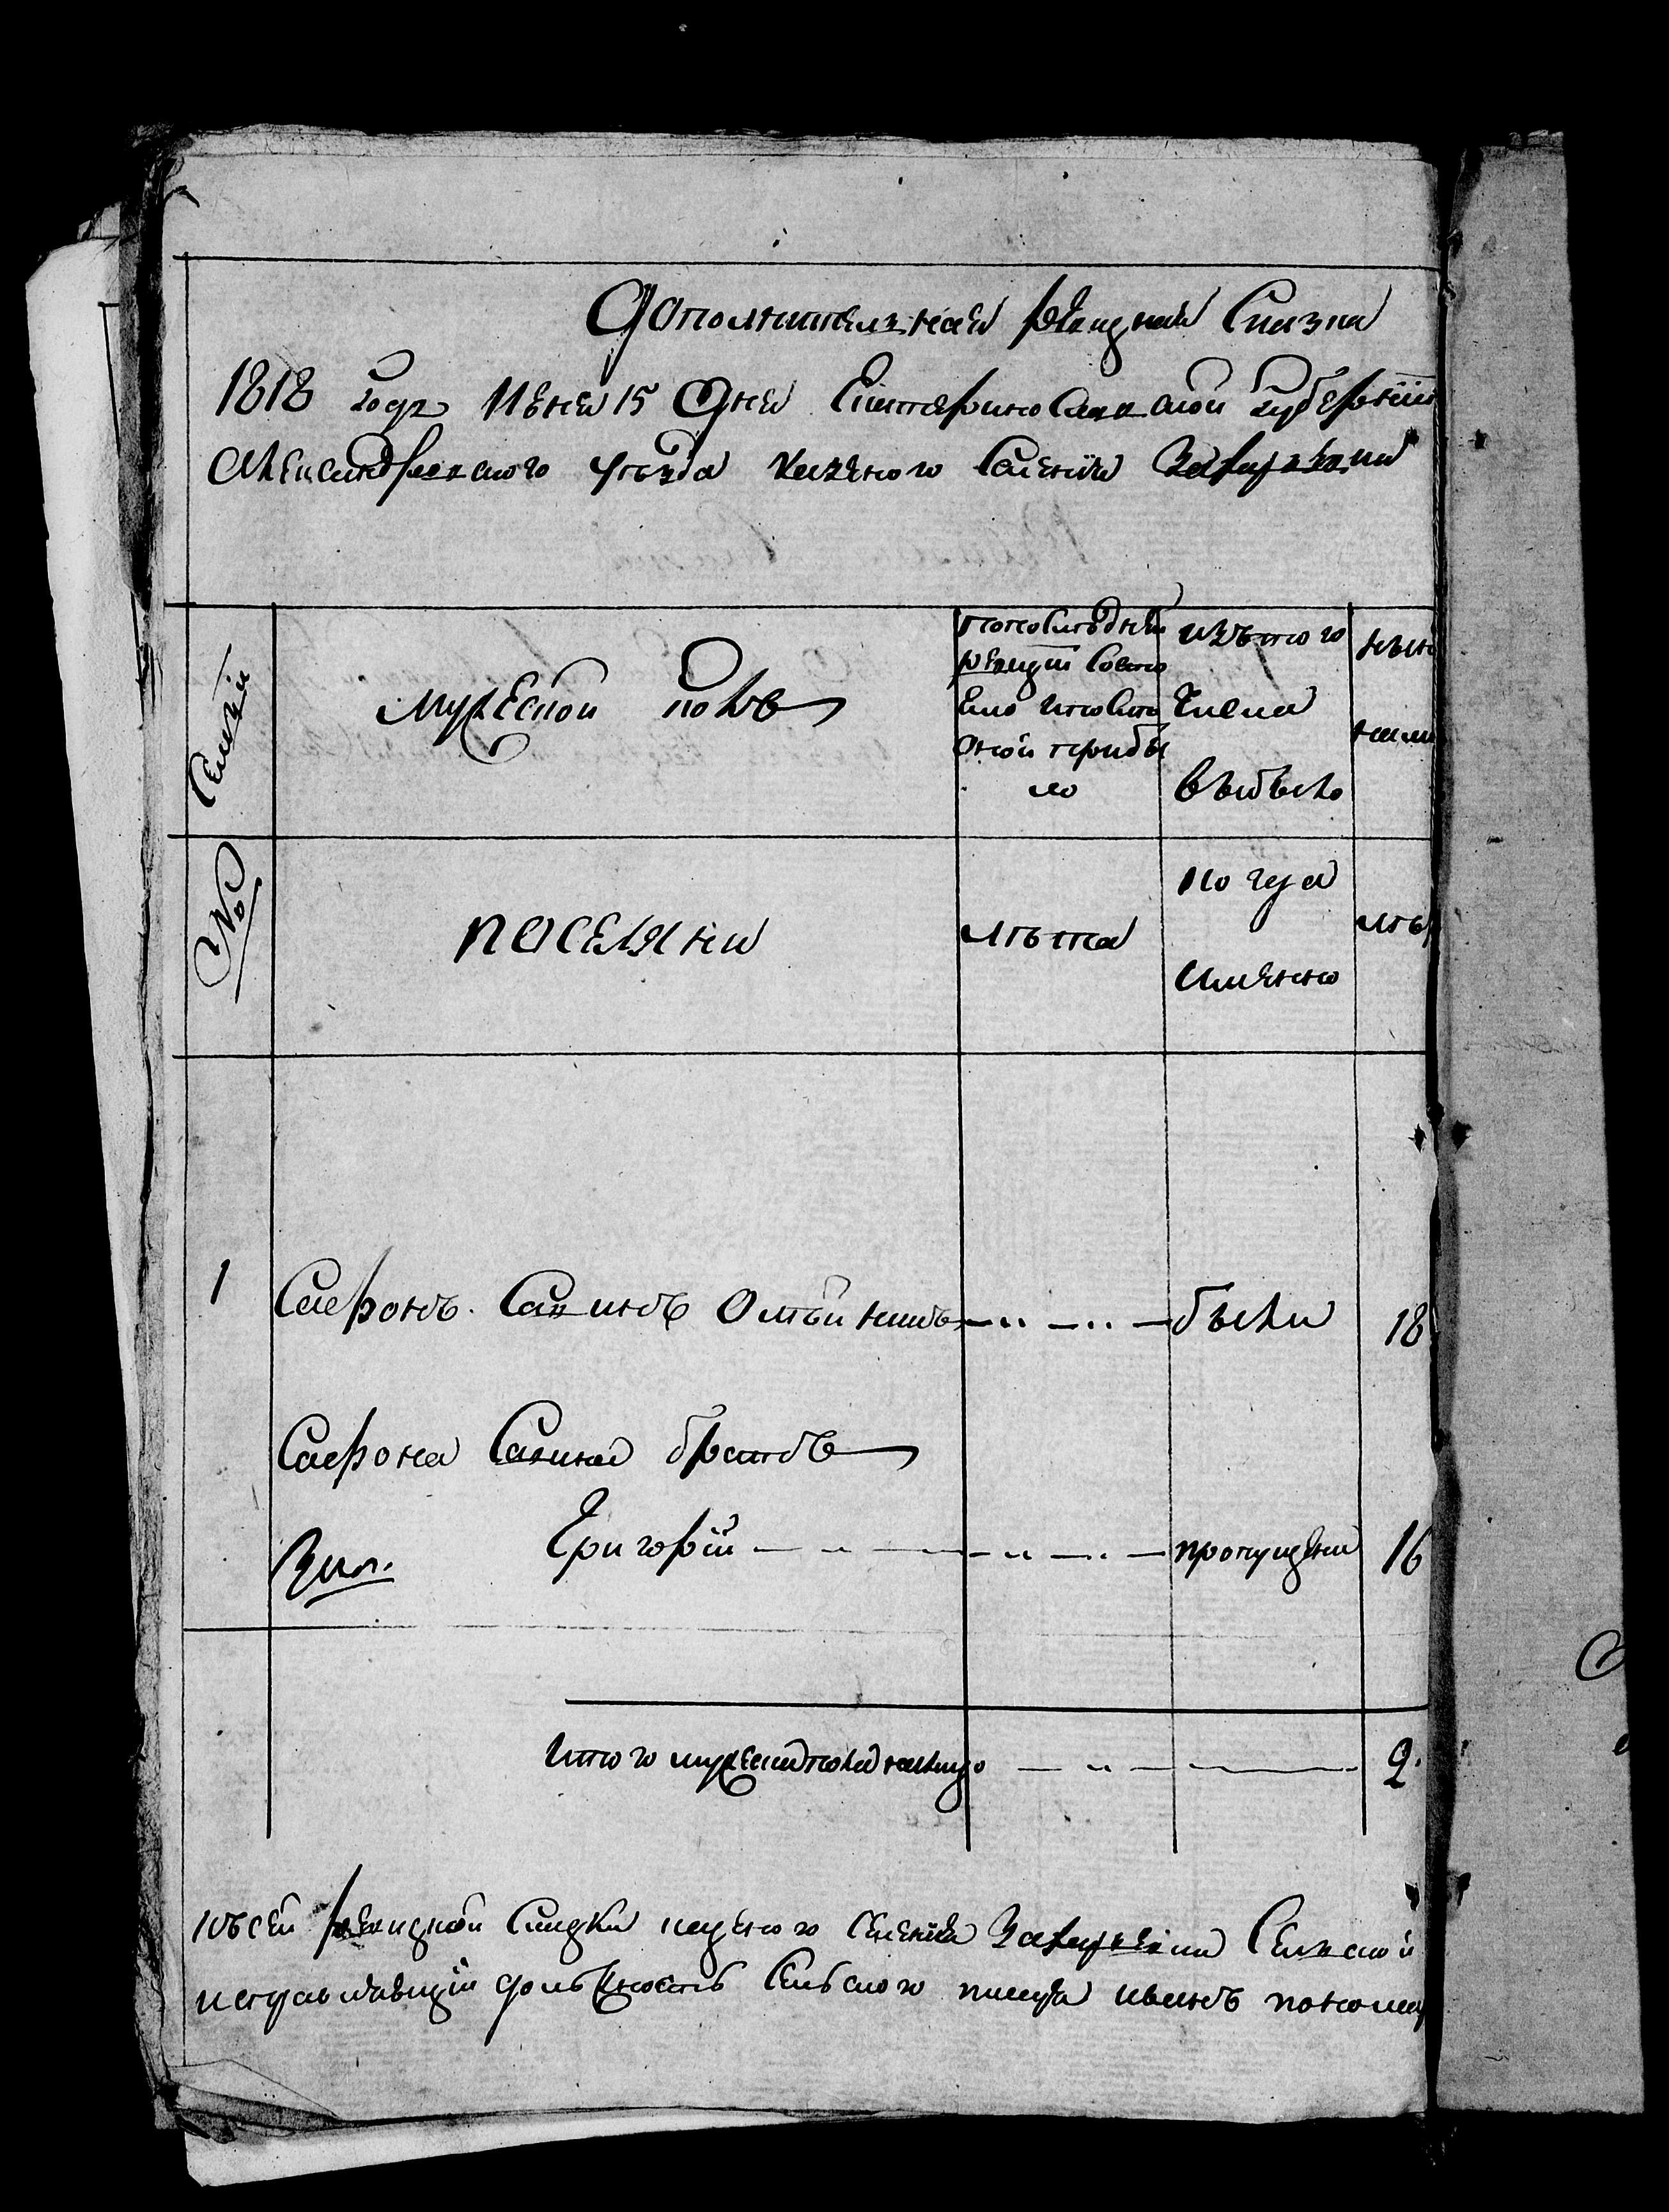 Дополнительная ревизная Сказка
1818 года Июня 15 Дня Екатеринославской губернии
Александрийского уезда казенного Селения
Семьи
мужеской полъ
по последней
ревизии состо
яло и после
оной прибы
ло
изътого
Числа
выбыло
ныне
нали
№
поселяни
лѣта
когда
именно
лѣт
1
Сафронъ Савинъ Олѣйникъ
были
18
Сафрона Савина братъ
Григорій
пропущени
16
итого мужеска пола налицо
2
ксей ревизкой скаски казеного селенія
исправляющій должность Сельского писаря иванъ